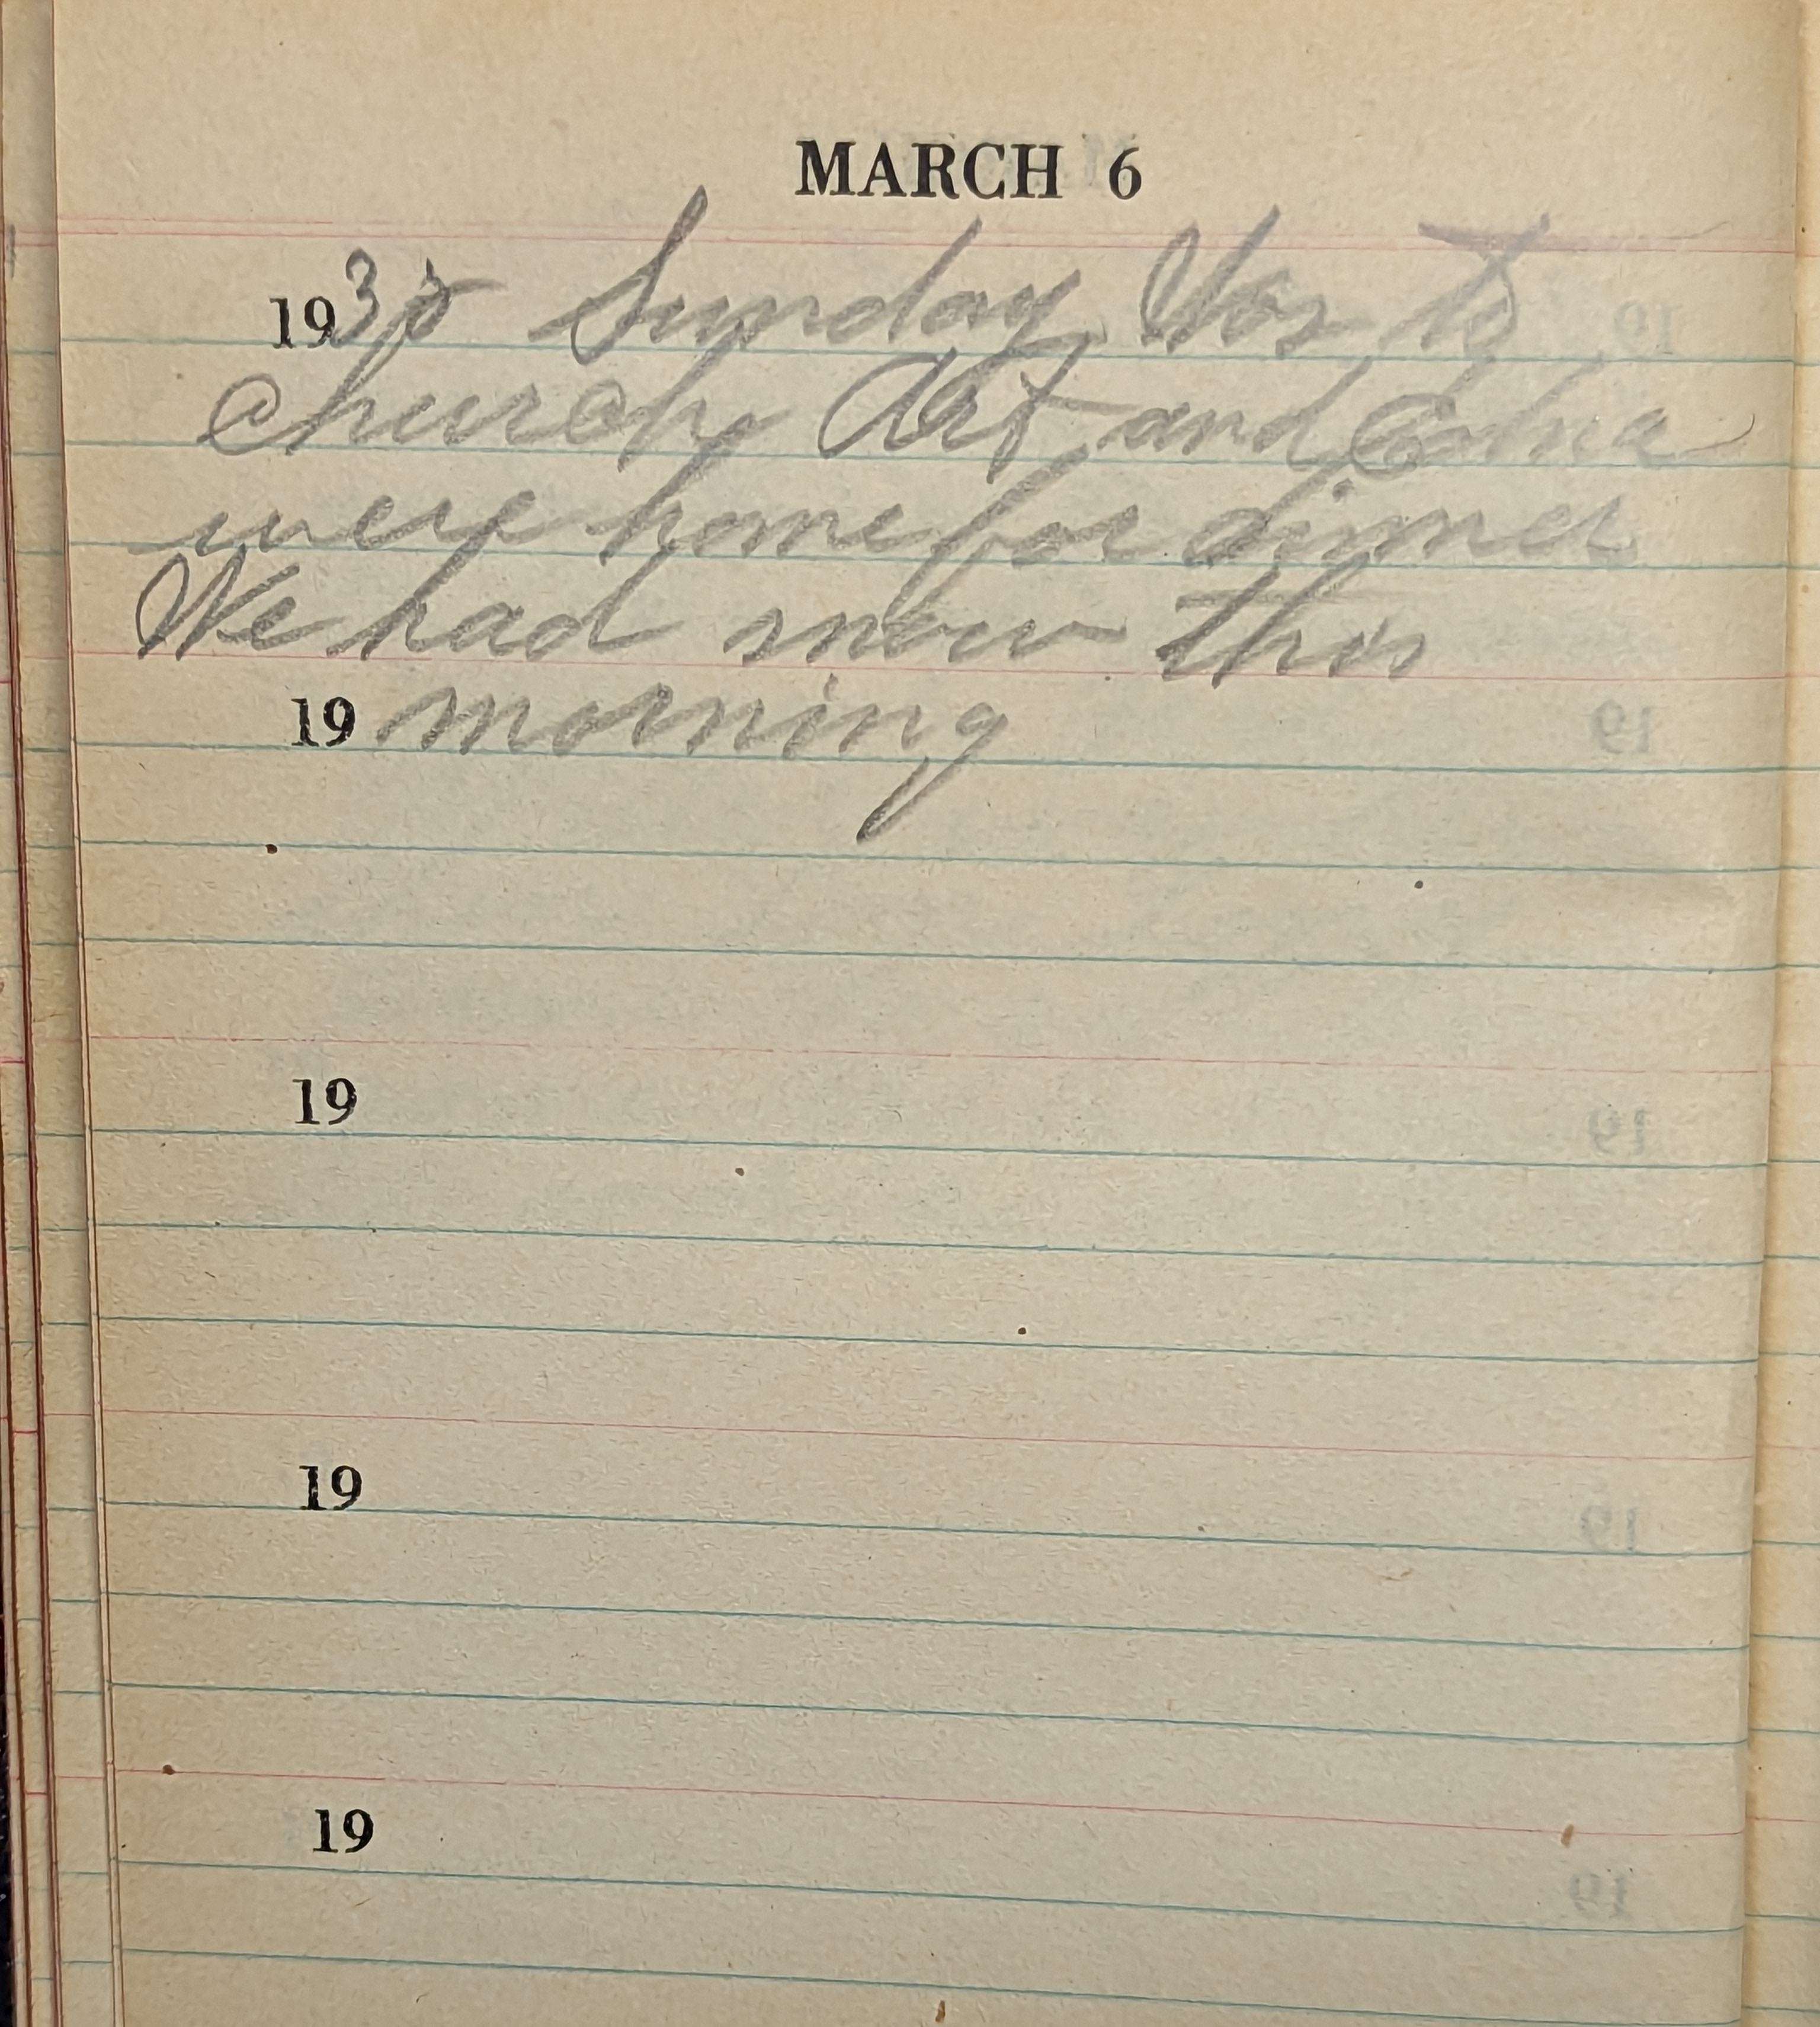 MARCH 6
1938 Sunday Was to
church Art and Edna
were home for dinner
We had snow this
19 morning
19
19
19